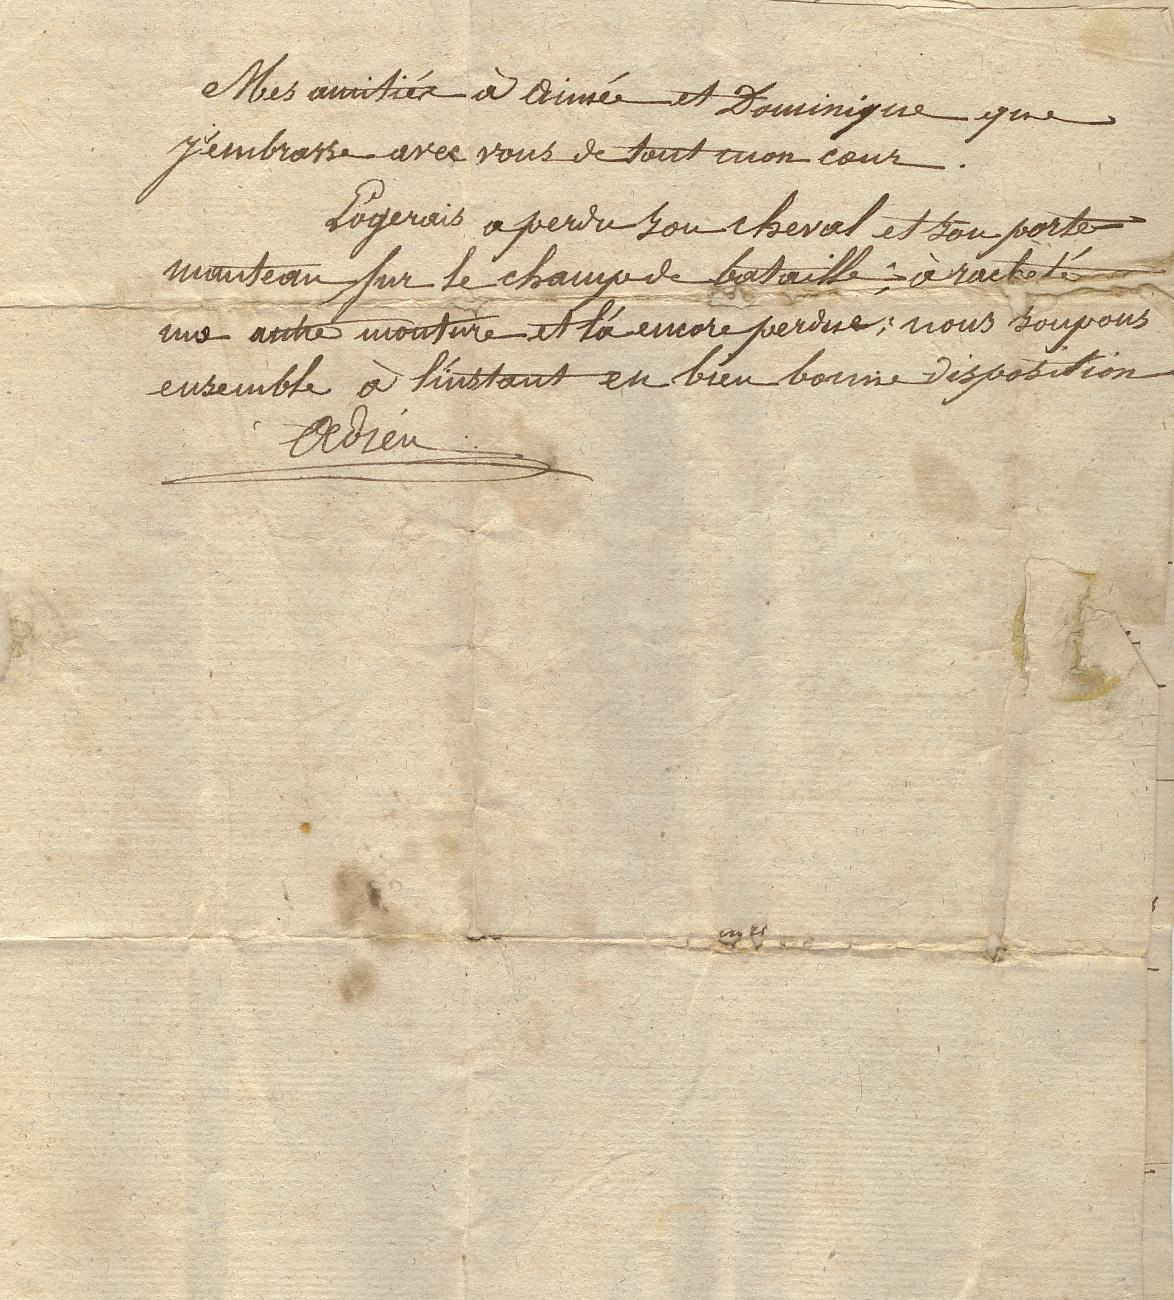 Mes amitiés à Aimée et Dominique que
j'embrasse avec vous de tout mon cœur.
Logerais a perdu son cheval et son porte
manteau sur le champ de bataille; à racheté
une autre monture et l'a encore perdue; nous soupons
ensemble à l'instant en bien bonne disposition
Adieu